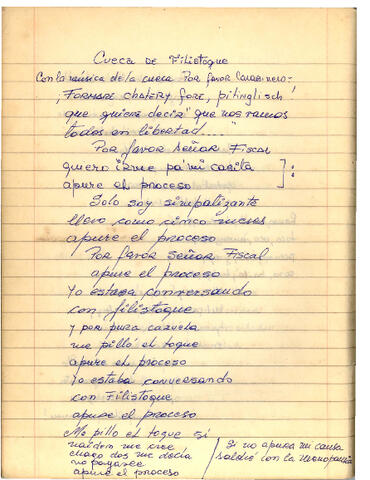 Cueca de Filistoque
Con la música de la cueca Por favor Carabinero:
¡Formare chatery fort, pitinglisch!
que quiere decir "que nos vamos
todos en libertad....."
Por favor Señor Fiscal
quiero irme pa' mi casita
apure el proceso
Solo soy simpatizante
llevo como cinco meses
apure el proceso
Por favor Señor Fiscal
apure el proceso
Yo estaba conversando
con filistoque
y por pura cazuela
me pilló el toque
apure el proceso
Yo estaba conversando
con Filistoque
apure el proceso
Me pillo el toque sí
naiden me cree
chago dos me decía
no payasee
apure el proceso
Si no apura mi causa
saldré con la